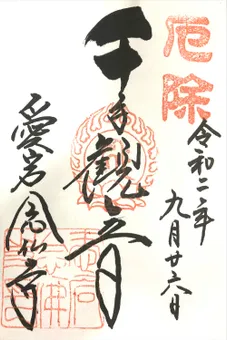 厄除
令和二年
九月廿六日
千手観音
愛宕念仏寺